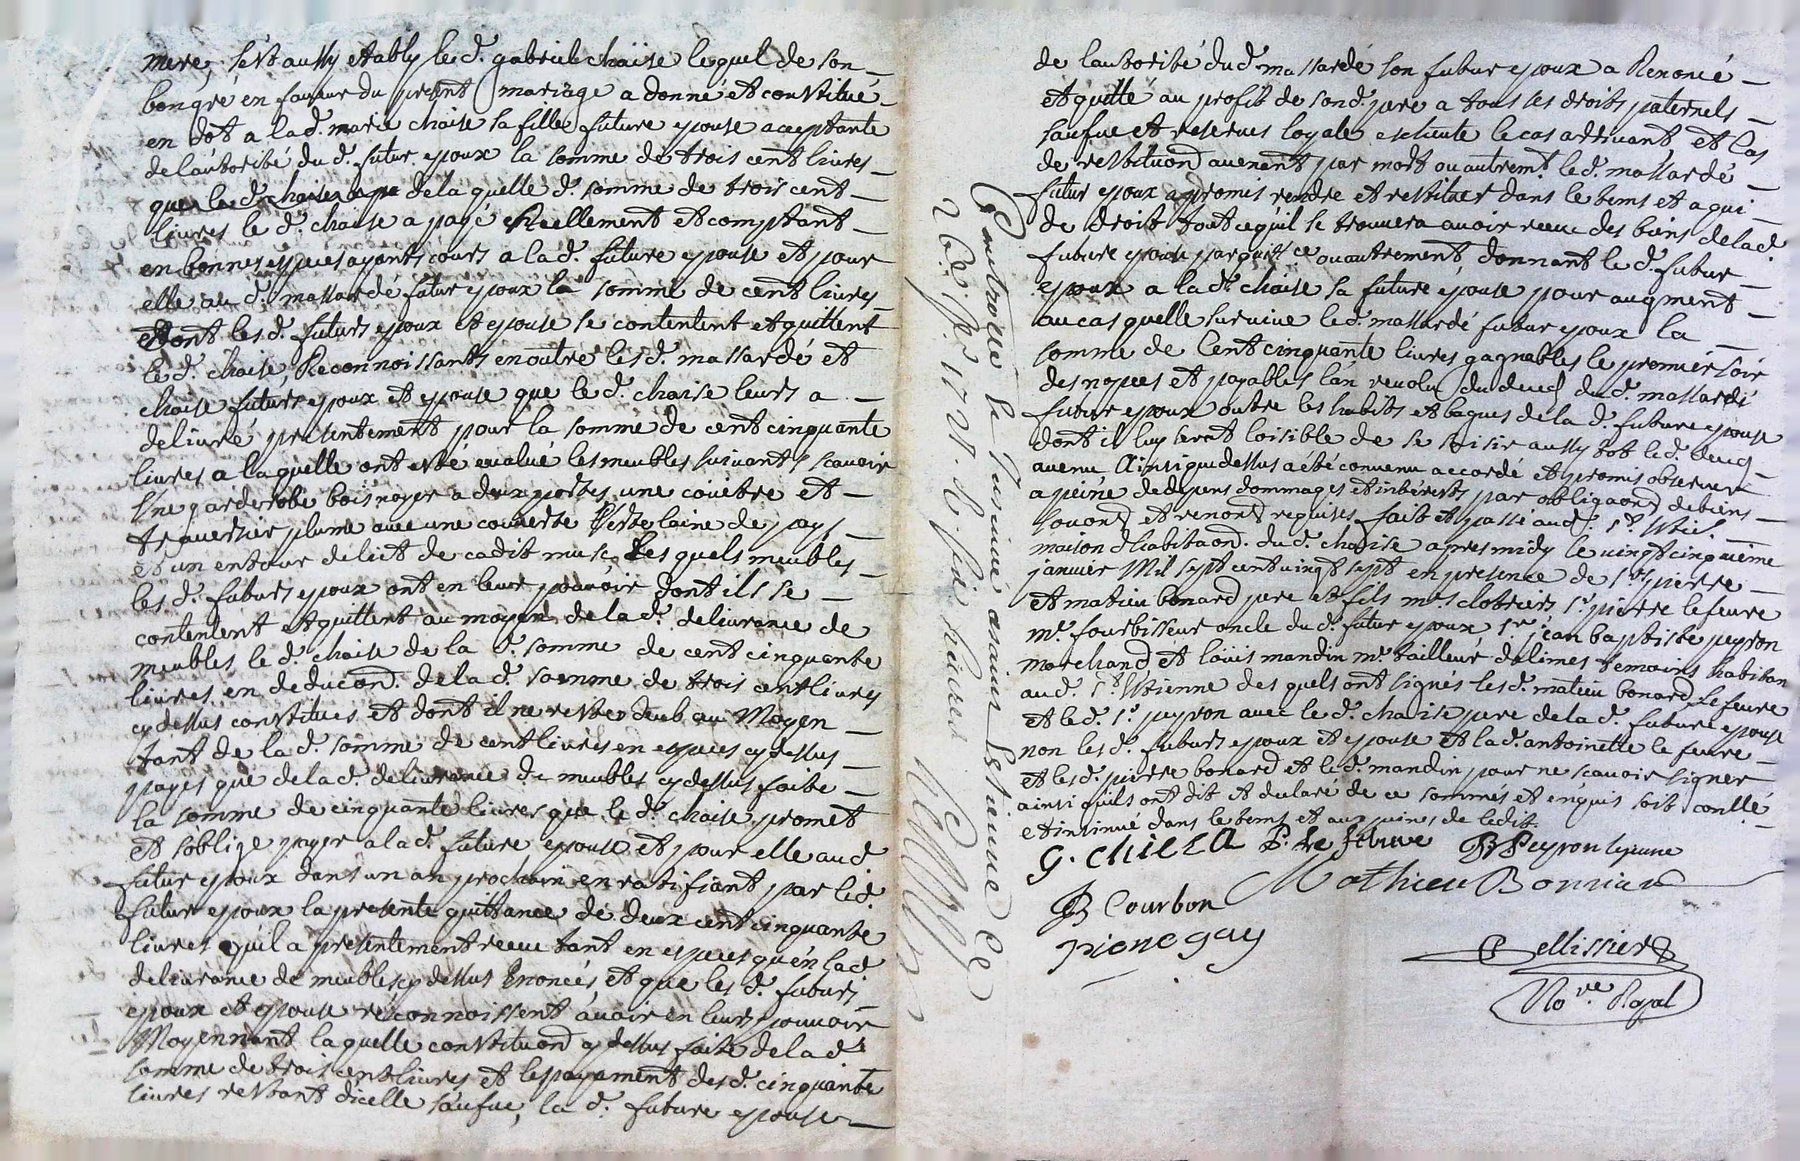 mere, s'est aussy etably led. gabriel chaise lequel de son
bon gré en faveur du present mariage a donné et constitué
en dot a lad. marie chaise sa fille future epouse aceptante
de lautorité dud. futur epoux la somme de trois cent livres
de la quelle d. somme de trois cent
livres le d. chaise a payé Reellement et comptant
en bonnes especes ayants cours a lad. future epouse et pour
elle aud. massardé futur epoux la somme de cent livres
dont lesd. futurs epoux et epouse se contentent et quittent
le d. chaise, Reconnoissants en outre lesd. massardé et
chaise futurs epoux et epouse que le d. chaise leurs a
delivré presentement pour la somme de cent cinquante
livres a laquelle ont esté evalué les meubles suivants scavoir
Une garderobe bois noyer a deux portes une couëtre et
traversier plume avec une couverte laine de pays
et un entour de lict de cadit musc, Les quels meubles
les d. futurs epoux ont en leur pouvoir dont ils se
contentent et quittent au moyen de lad. delivrance de
meubles le d. chaise de la d. somme de cent cinquante
livres en deducond. de lad. somme de trois cent livres
cy dessus constitues et dont il ne reste deub au Moyen
tant de la d. somme de cent livres en especes cy dessus
payes que de lad. delivrance de meubles cy dessus faite
la somme de cinquante livres que le d. chaise promet
et soblige payer a la d. future epouse et pour elle aud.
futur epoux dans un an prochain en ratifiant par led.
futur epoux la presente quittance de deux cent cinquante
livres quil a presentement receu tant en especes qu'en lad.
delivrance de meubles cy dessus Enoncés, et que les d. futurs
epoux et epouse reconnoissent avoir en leurs pouvoir
Moyennant laquelle constituond cy dessus faite de lad.
somme de trois cent livres et le payement desd. cinquante
livres restant d'icelle saufue, la d. future epouse
de lautorité dud. massardé son futur epoux a Renoncé
et quitté au profit de sond. pere a tous ses droits paternels
saufue et reserves loyale escheute le cas arrivant et cas
de restituond avenant par mort ou autremt. led. massardé
futur epoux a promis rendre et restituer dans le tems et a qui
de droit tout ce quil se trouvera avoir receu des biens de lad.
future epouse par quitce ou autrement, donnant le d. futur
epoux a la de. chaise sa future epouse pour augment
au cas quelle survive led. massardé futur epoux la
somme de Cent cinquante livres gagnables le premier soir
des nopces et payables l'an revolu du deced dud. massardé
futur epoux outre les habits et bagues de la d. future epouse
dont il luy serat loisible de se saisir aussy tot led. deced
avenu Ainsi que dessus a été convenu accordé et promis observer
a peine de depens dommages et interests par obligaond de biens
souond et renond requises fait et passé aud. St. Etie.
maison d'habitaond. dud. chaise apres midy le vingt cinquieme
janvier Mil sept cent vingt sept en presence de Srs. pierre
et matieu bonard pere et fils mes. clotriers Sr. pierre lefevre
me. fourbisseur oncle dud. futur epoux, Sr. jean baptiste peyron
marchand et loüis mandin me. tailleur de limes temoins habitan
aud. St. Etienne des quels ont signés lesd. matieu bonard, Lefevre
et led. Sr. peyron avec le d. chaise pere de lad. future epouse
non lesd. futurs epoux et epouse et lad. antoinette le fevre
et lesd. pierre bonard et led. mandin pour ne scavoir signer
ainsi quils ont dit et declaré de ce sommés et enquis soit conllé
et insinué dans le tems et aux peines de ledit.
G. Chieza P. Le fevre JB Peyron le jeune
Mathieu Bonnard
JB Courbon
pierre gay
Pellissier
Nore. Royal
Controllé et insinué a sainct Estienne Le